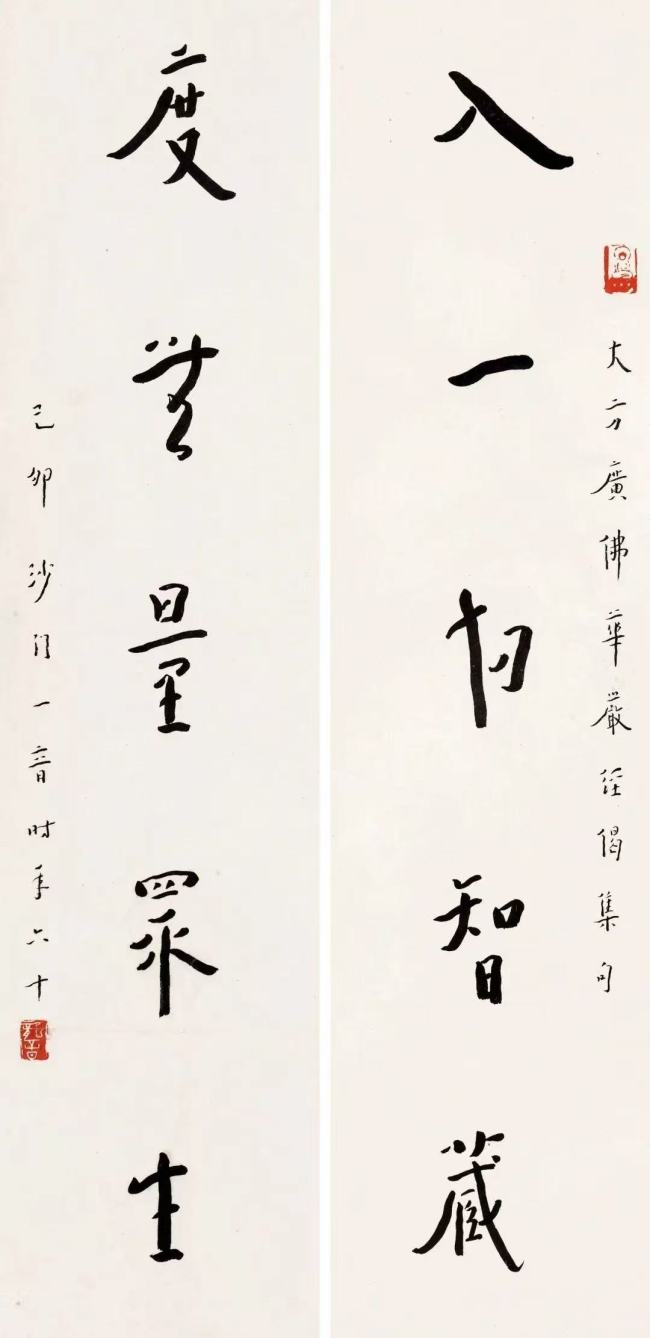 大方廣佛華嚴經偈集句
入一切智藏
度無量眾生
己卯沙門一音時年六十